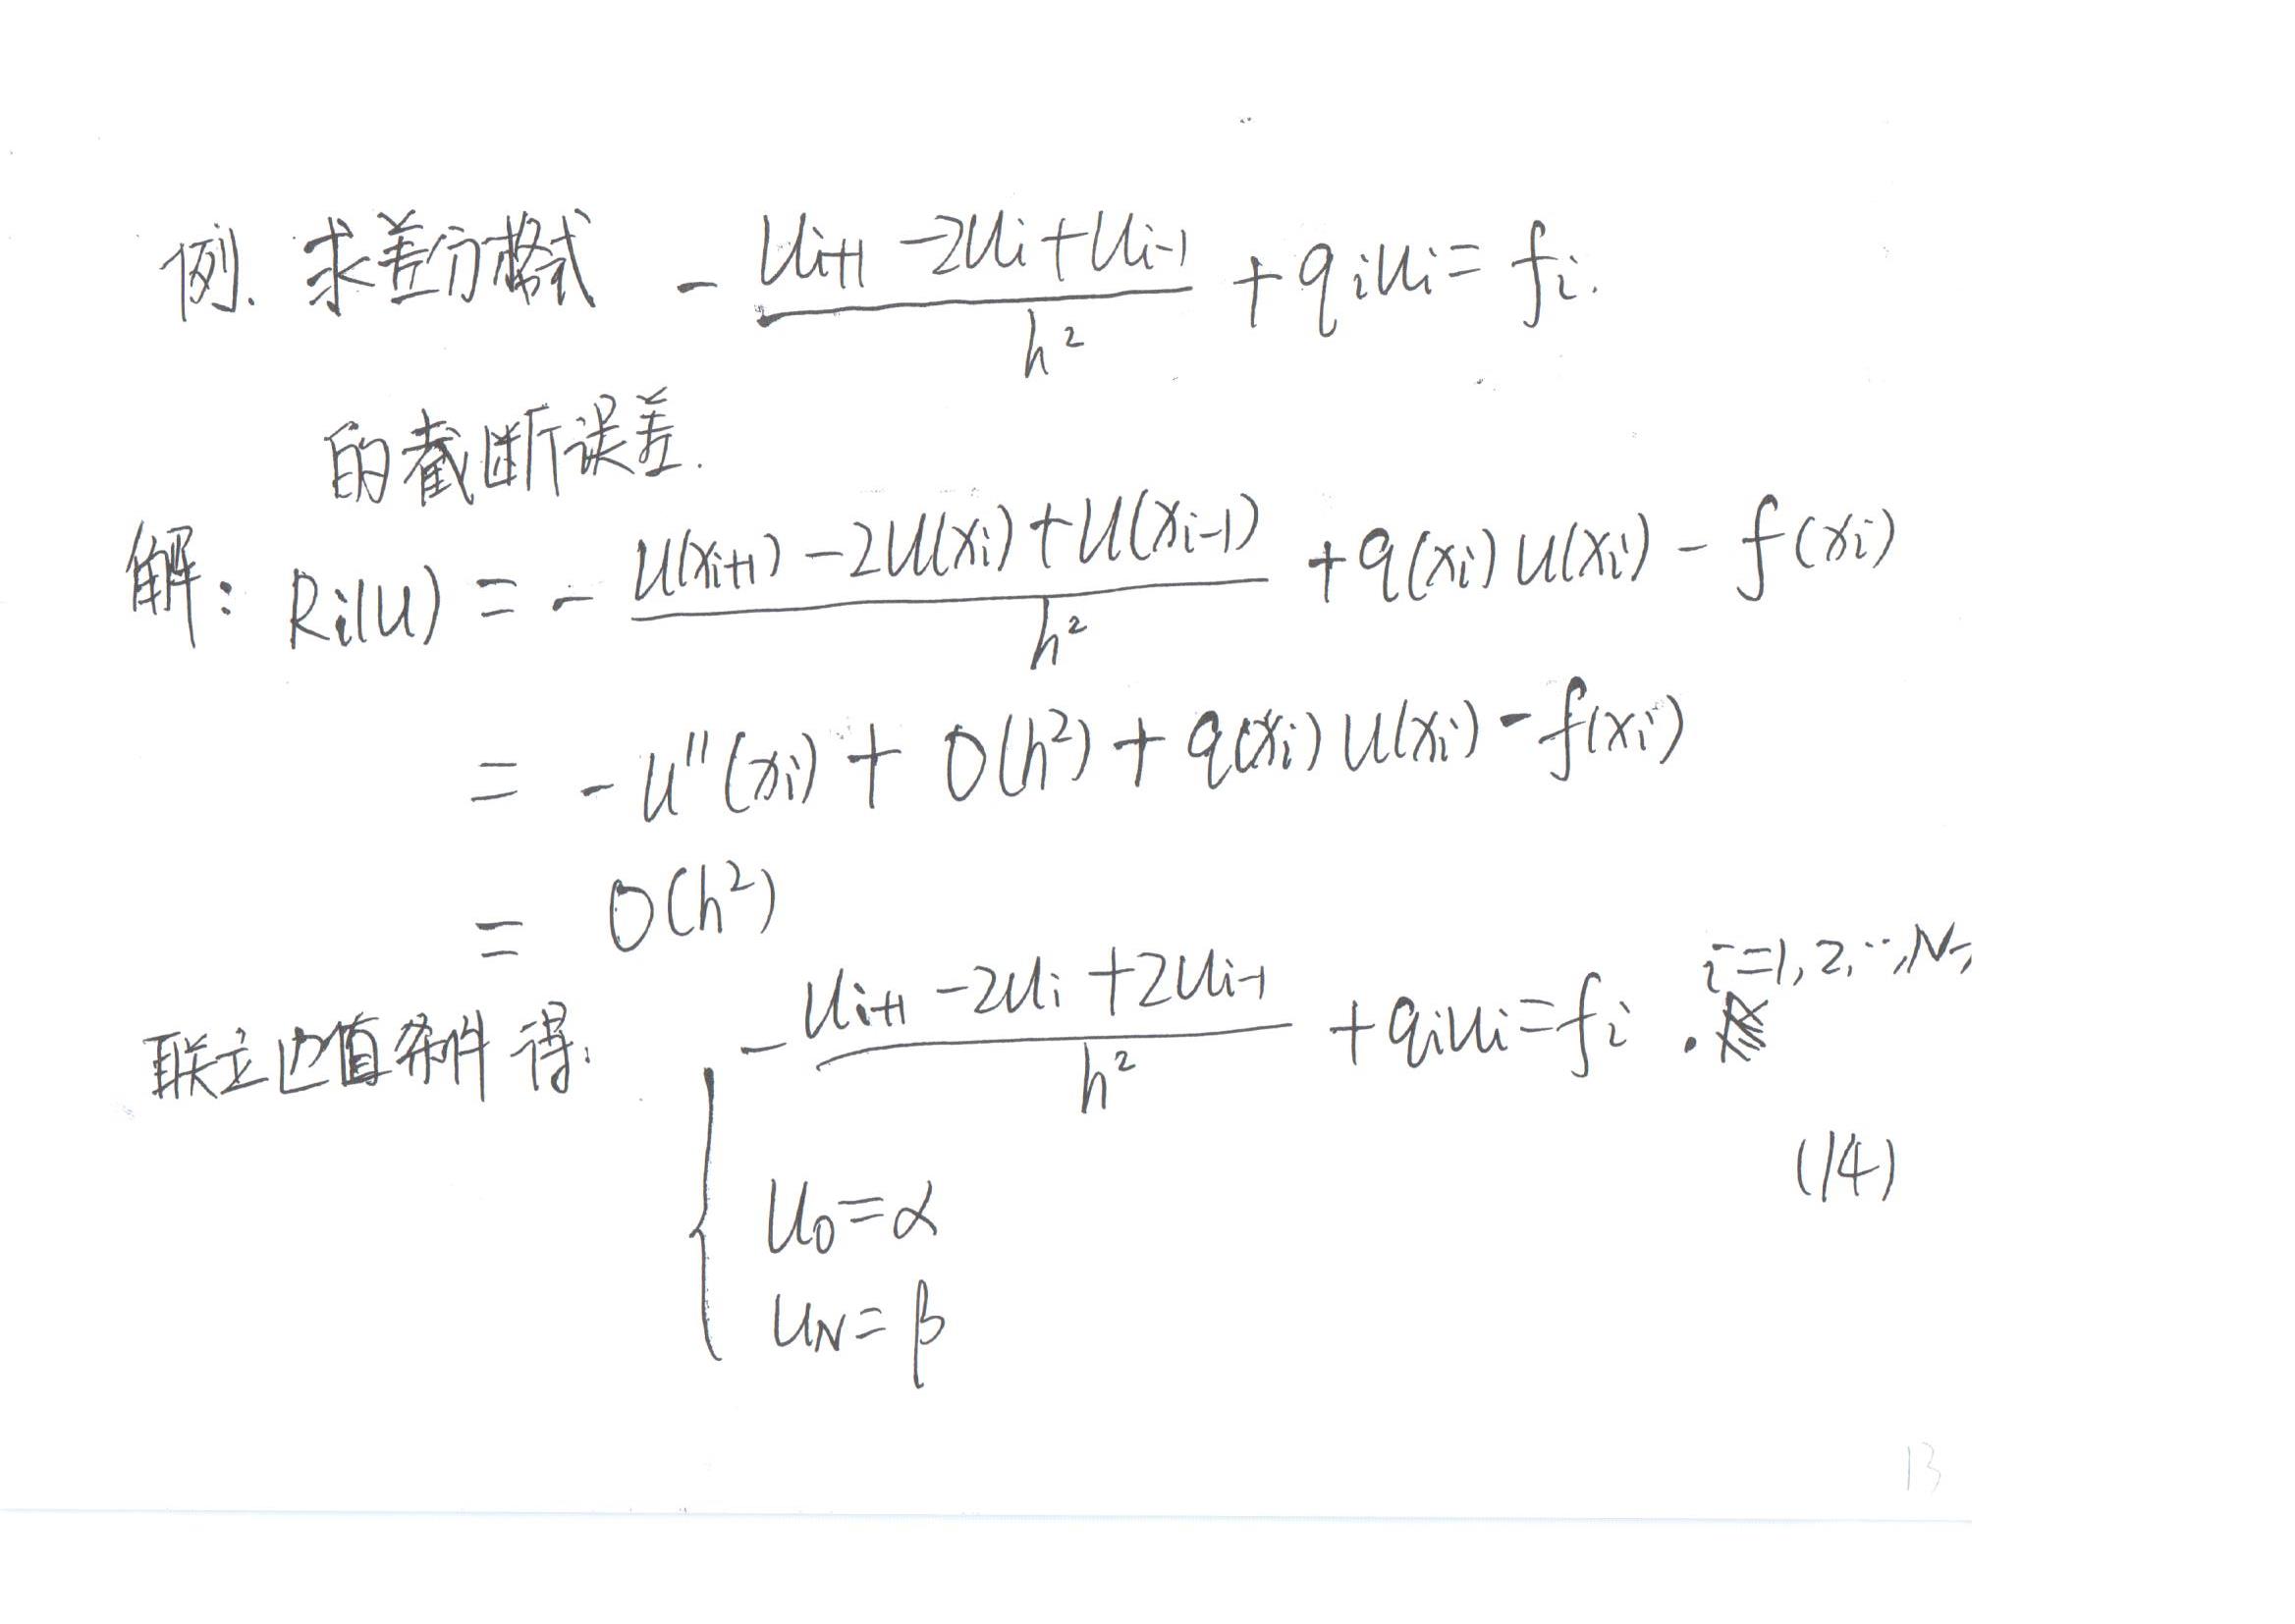 例. 求差分格式 $-\frac{u_{i+1}-2u_i+u_{i-1}}{h^2}+q_iu_i=f_i.$
的截断误差.
解: $R_i(u)=-\frac{u(x_{i+1})-2u(x_i)+u(x_{i-1})}{h^2}+q(x_i)u(x_i)-f(x_i)$
$=-u''(x_i)+O(h^2)+q(x_i)u(x_i)-f(x_i)$
$=O(h^2)$
i=1,2,…,N-
联立边值条件得: $-\frac{u_{i+1}-2u_i+2u_{i-1}}{h^2}+q_iu_i=f_i.$
(14)
$u_0=\alpha$
$u_N=\beta$
13